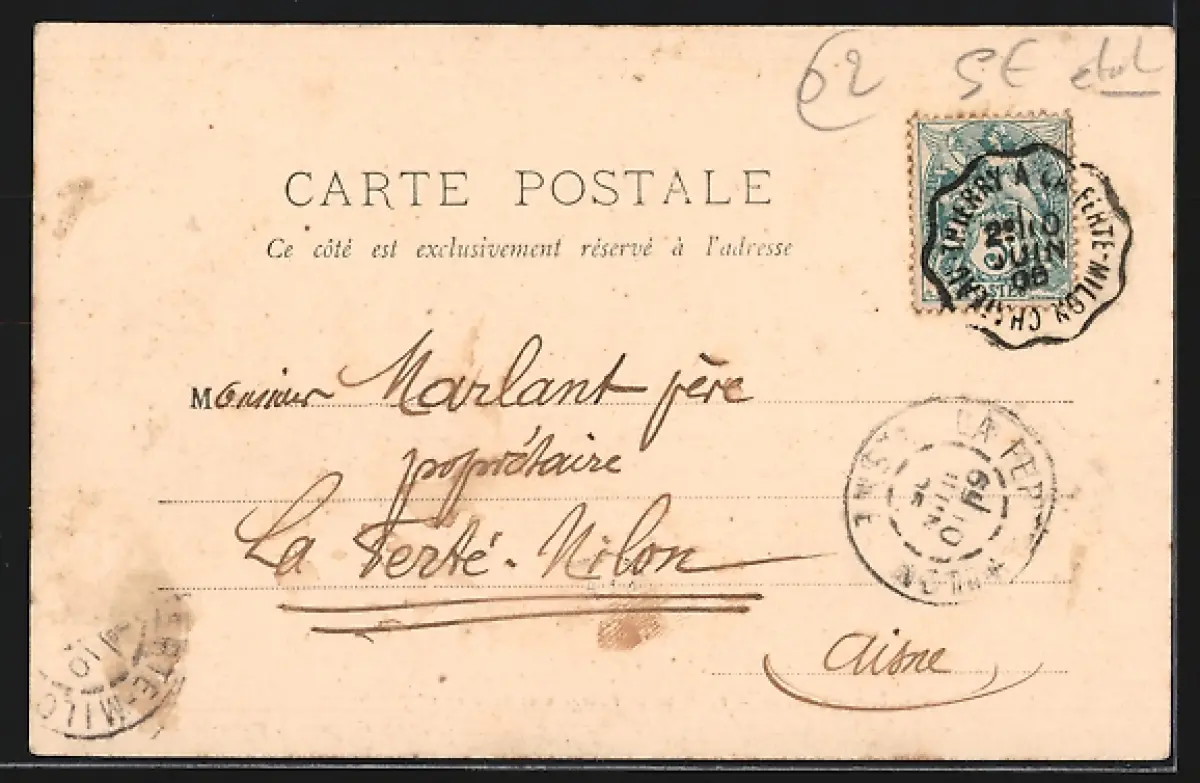 62 5€
CARTE POSTALE
Ce côté est exclusivement réservé à l'adresse
CHATEAU-THIERRY A LA FERTE-MILON
2º 10
JUIN
05
POSTES
Monsieur Marlant père
propriétaire
La Ferté-Milon
Aisne
LA FERTE-MILON
AISNE
10
ERTE-MILO
10